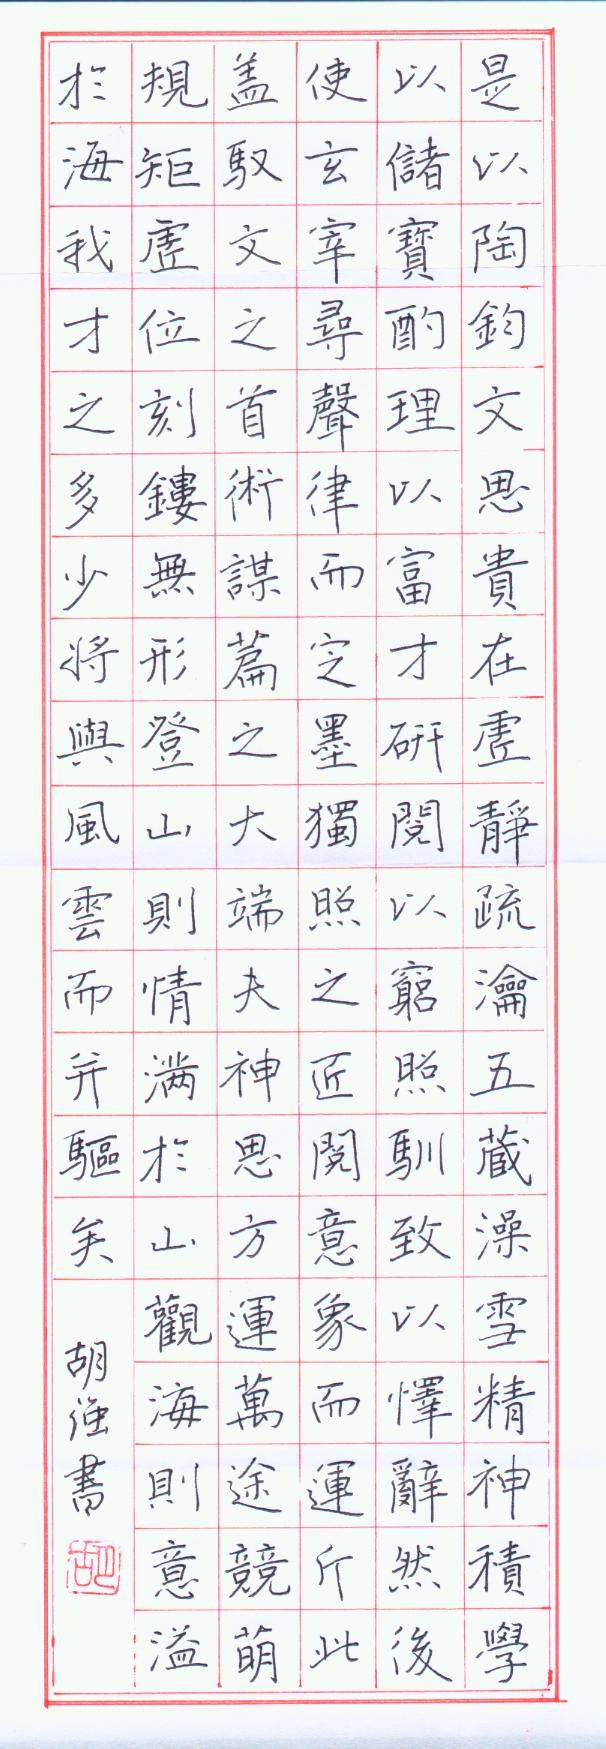 是以陶鈞文思貴在虛靜疏瀹五藏澡雪精神積學
以儲寶酌理以富才研閱以窮照馴致以懌辭然後
使玄宰尋聲律而定墨獨照之匠闚意象而運斤此
蓋馭文之首術謀篇之大端夫神思方運萬途競萌
規矩虛位刻鏤無形登山則情滿於山觀海則意溢
於海我才之多少將與風雲而并驅矣
胡強書
胡